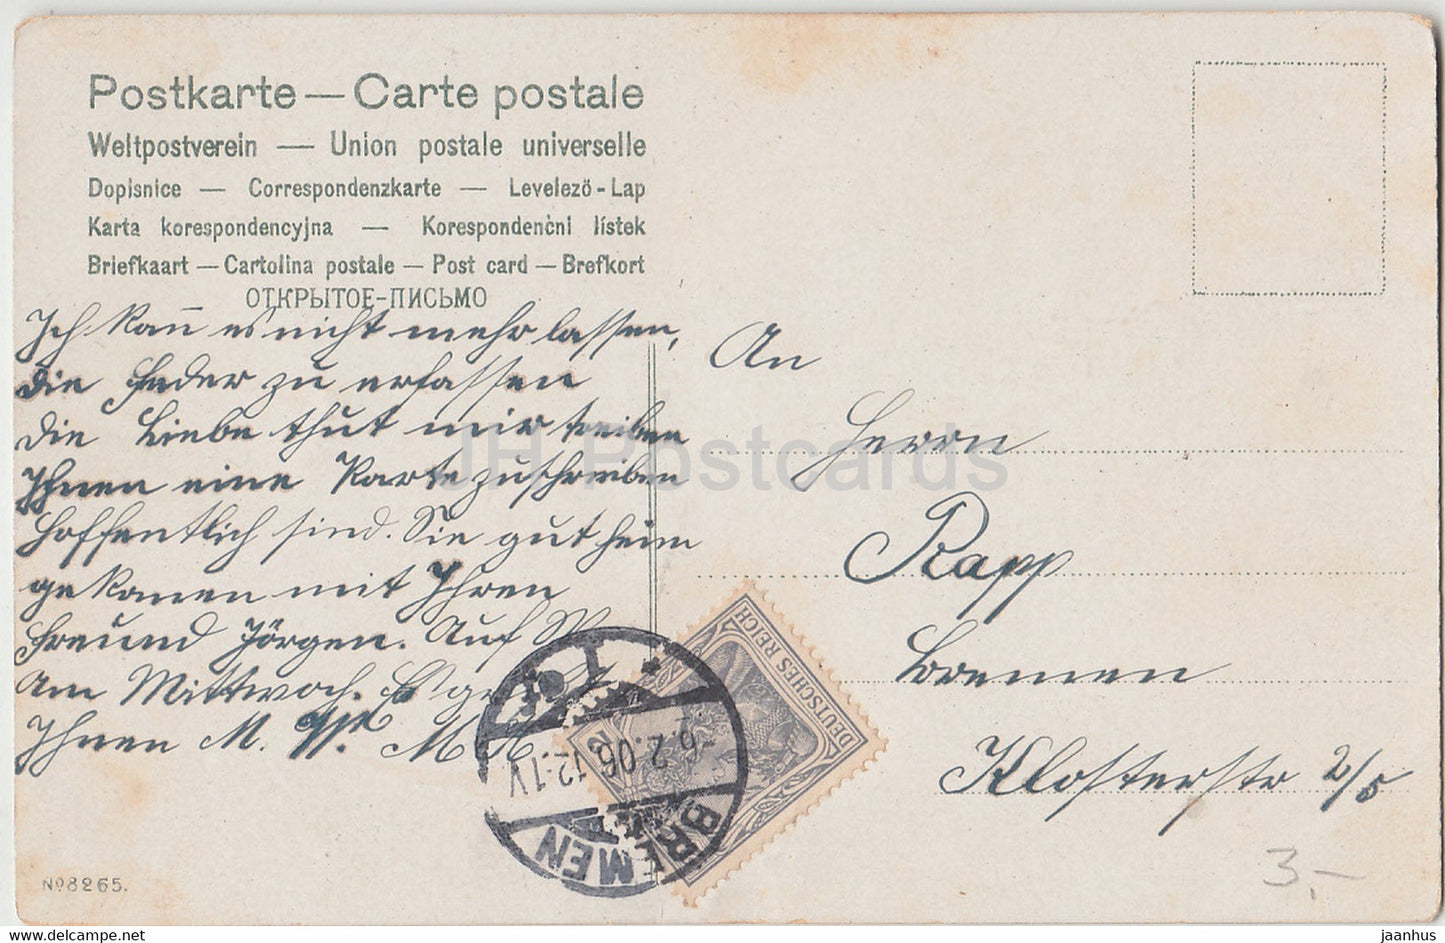 Postkarte — Carte postale
Weltpostverein — Union postale universelle
Dopisnice — Correspondenzkarte — Levelező-Lap
Karta korespondencyjna — Korespondenční lístek
Briefkaart — Cartolina postale — Post card — Brefkort
ОТКРЫТОЕ-ПИСЬМО
Ich kan̄ es nicht mehr lassen,
die Feder zu erfassen
die Liebe thut mir treiben
Ihnen eine Karte zuschreiben
Hoffentlich sind. Sie gut heim
gekomen mit Ihren
Freund Jörgen. Auf W
Am Mittwoch.
Ihnen M. M
An
Herrn
Rapp
Bremen
Klosterstr 2/5
DEUTSCHES REICH
BREMEN
-6.2.06.12-1V
No 8265.
3,-
JH Postcards
www.delcampe.net
jaanhus